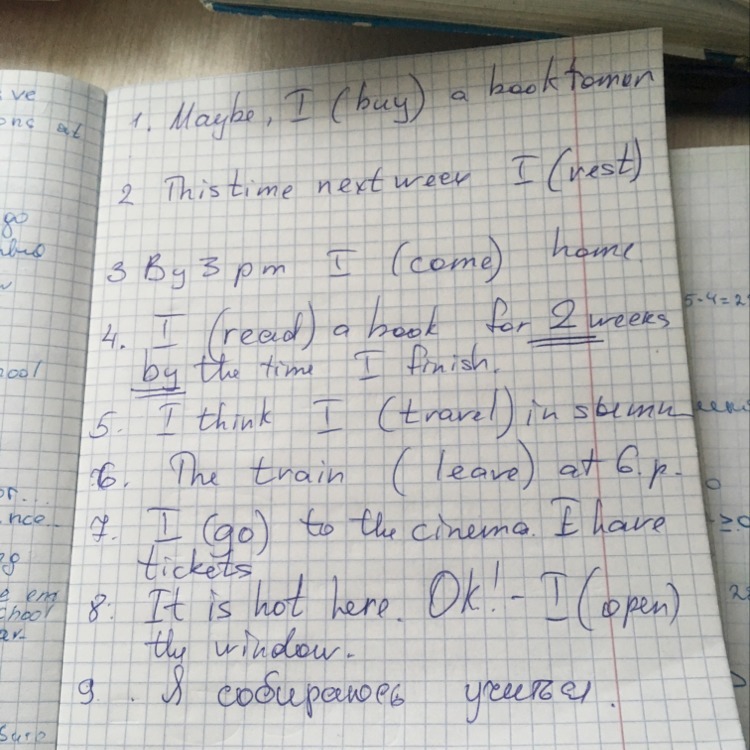 ve
ons at
1. Maybe, I (buy) a book tomorr
2 This time next week I (rest)
go
3 By 3 pm I (come) home
4. I (read) a book for 2 weeks
by the time I finish.
ool
5. I think I (travel) in
6. The train (leave) at 6.p.
7. I (go) to the cinema. I have
tickets
nce
8. It is hot here. Ok! - I (open)
chool
the window.
9. Я собираюсь учиться.
5-4=2